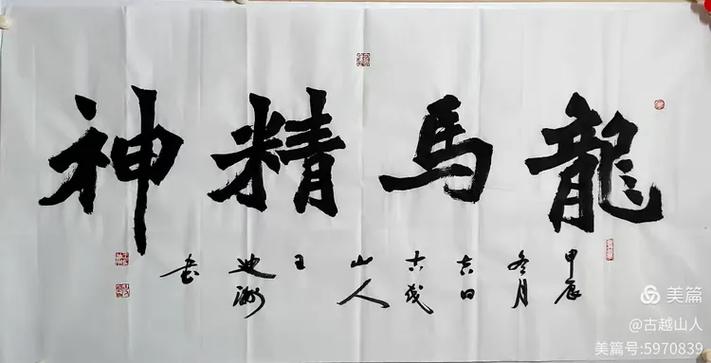 龍馬精神
甲辰
冬月
吉日
古越
山人
王
书
美篇
@古越山人
美篇号:5970839